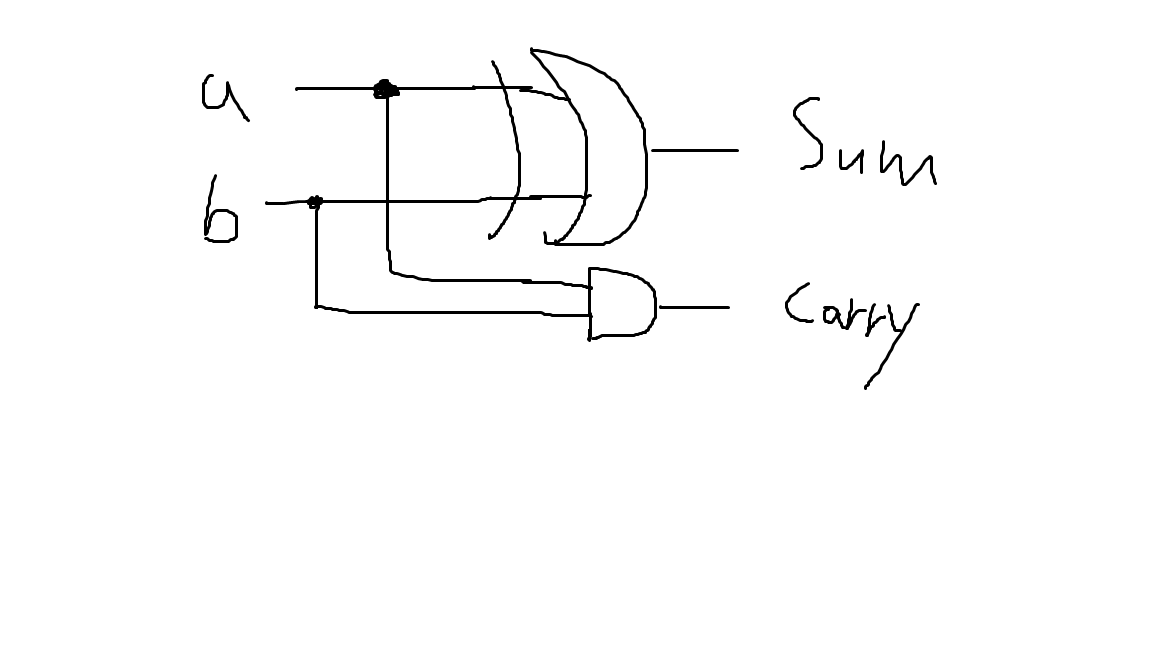 a
Sum
b
Carry